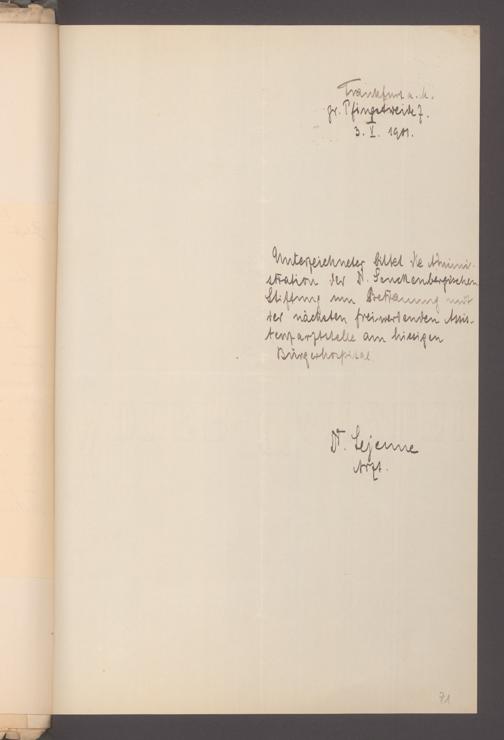 Frankfurt a. M.
gr. Pfingstweide 7.
3. V. 1911.
Unterzeichneter bittet die Admini-
stration der Dr. Senckenbergischen
Stiftung um Betrauung mit
der nächsten freiwerdenden Assis-
tenzarztstelle am hiesigen
Bürgerhospital
Dr. Lejeune
Arzt.
71